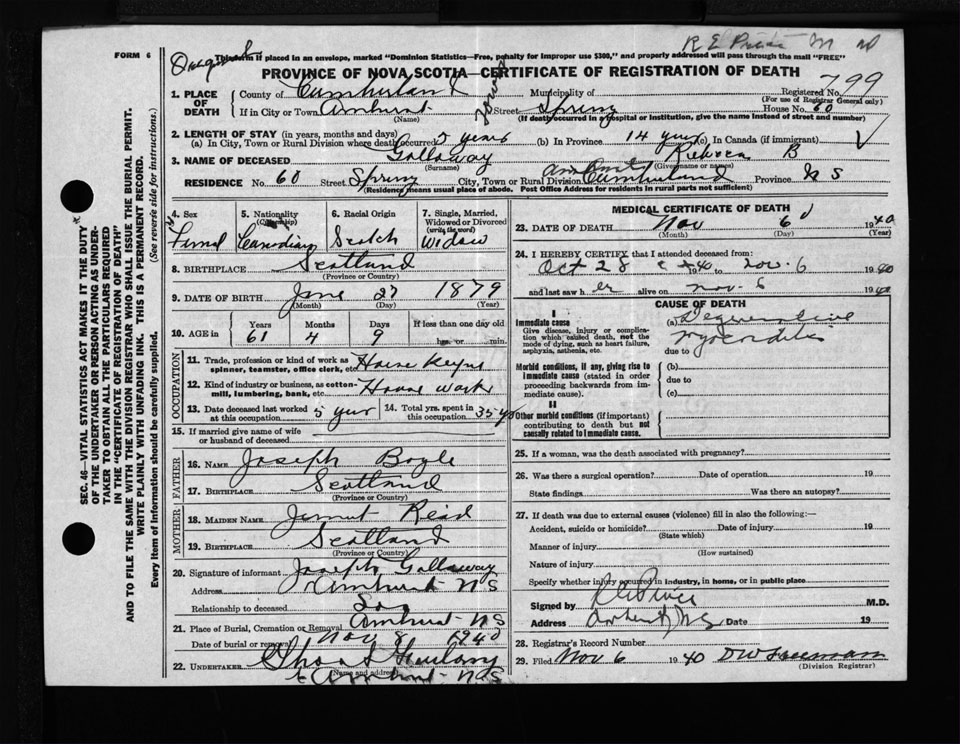 R E Price M D
FORM 6
This form if placed in an envelope, marked "Dominion Statistics—Free, penalty for improper use $300," and properly addressed will pass through the mail "FREE"
PROVINCE OF NOVA SCOTIA—CERTIFICATE OF REGISTRATION OF DEATH
1. PLACE OF DEATH
County of Cumberland Municipality of Registered No. 799
(For use of Registrar General only)
If in City or Town Amherst Street Spring House No. 60
(Name) (If death occurred in a hospital or institution, give the name instead of street and number)
2. LENGTH OF STAY (in years, months and days)
(a) In City, Town or Rural Division where death occurred 5 years (b) In Province 14 years (c) In Canada (if immigrant)
3. NAME OF DECEASED Gallaway Rebecca B
(Surname) (Given name or names)
RESIDENCE No. 60 Street Spring City, Town or Rural Division Amherst Cumberland Province N S
(Residence means usual place of abode. Post Office Address for residents in rural parts not sufficient)
4. Sex 5. Nationality (Citizenship) 6. Racial Origin 7. Single, Married, Widowed or Divorced (write the word)
Femal Canadian Scotch Widow
8. BIRTHPLACE Scotland
(Province or Country)
9. DATE OF BIRTH June 27 1879
(Month) (Day) (Year)
10. AGE in Years Months Days If less than one day old
61 4 9 hrs. or min.
OCCUPATION
11. Trade, profession or kind of work as spinner, teamster, office clerk, etc. House Keeper
12. Kind of industry or business, as cotton-mill, lumbering, bank, etc. House work
13. Date deceased last worked at this occupation 5 year 14. Total yrs. spent in this occupation 35 yr
15. If married give name of wife or husband of deceased
FATHER
16. NAME Joseph Boyle
17. BIRTHPLACE Scotland
(Province or Country)
MOTHER
18. MAIDEN NAME Jennet Reid
19. BIRTHPLACE Scotland
(Province or Country)
20. Signature of informant Joseph Gallaway
Address Amherst N S
Relationship to deceased Son
21. Place of Burial, Cremation or Removal Amherst N S
Date of burial or removal Nov 8 1940
22. UNDERTAKER
(Name and address) Amherst N S
MEDICAL CERTIFICATE OF DEATH
23. DATE OF DEATH Nov 6 1940
(Month) (Day) (Year)
24. I HEREBY CERTIFY that I attended deceased from:
Oct 28 1940 to Nov. 6 1940
and last saw her alive on Nov. 6 1940
CAUSE OF DEATH
I
Immediate cause
Give disease, injury or complication which caused death, not the mode of dying, such as heart failure, asphyxia, asthenia, etc.
(a) Degenerative
myocarditis
due to
Morbid conditions, if any, giving rise to immediate cause (stated in order proceeding backwards from immediate cause).
(b)
due to
(c)
II
Other morbid conditions (if important) contributing to death but not causally related to immediate cause.
25. If a woman, was the death associated with pregnancy?
26. Was there a surgical operation? Date of operation 19
State findings Was there an autopsy?
27. If death was due to external causes (violence) fill in also the following:—
Accident, suicide or homicide? Date of injury 19
(State which)
Manner of injury
(How sustained)
Nature of injury
Specify whether injury occurred in industry, in home, or in public place
Signed by R E Price M.D.
Address Amherst, N.S. Date 19
28. Registrar's Record Number
29. Filed Nov 6 1940 D W Freeman
(Division Registrar)
SEC. 46—VITAL STATISTICS ACT MAKES IT THE DUTY
OF THE UNDERTAKER OR PERSON ACTING AS UNDER-
TAKER TO OBTAIN ALL THE PARTICULARS REQUIRED
IN THE "CERTIFICATE OF REGISTRATION OF DEATH"
AND TO FILE THE SAME WITH THE DIVISION REGISTRAR WHO SHALL ISSUE THE BURIAL PERMIT.
WRITE PLAINLY WITH UNFADING INK. THIS IS A PERMANENT RECORD.
Every item of information should be carefully supplied. (See reverse side for instructions.)